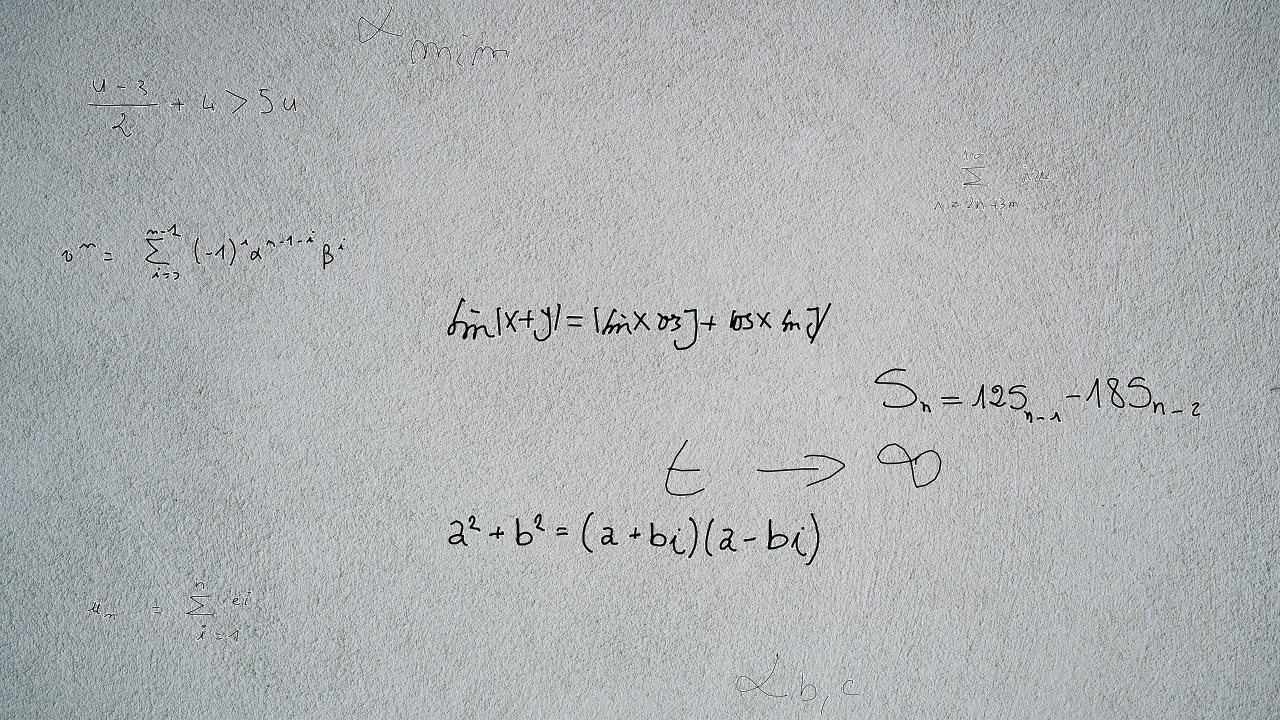 α_{min}
\frac{u-3}{2} + 4 > 5u
v^n = \sum_{i=0}^{n-1} (-1)^i α^{n-1-i} β^i
sin[x+y] = [sin x cos y] + cos x sin y
S_n = 12S_{n-1} - 18S_{n-2}
t → ∞
a² + b² = (a + bi)(a - bi)
u_n = \sum_{i=1}^{n} ei
α_{b,c}